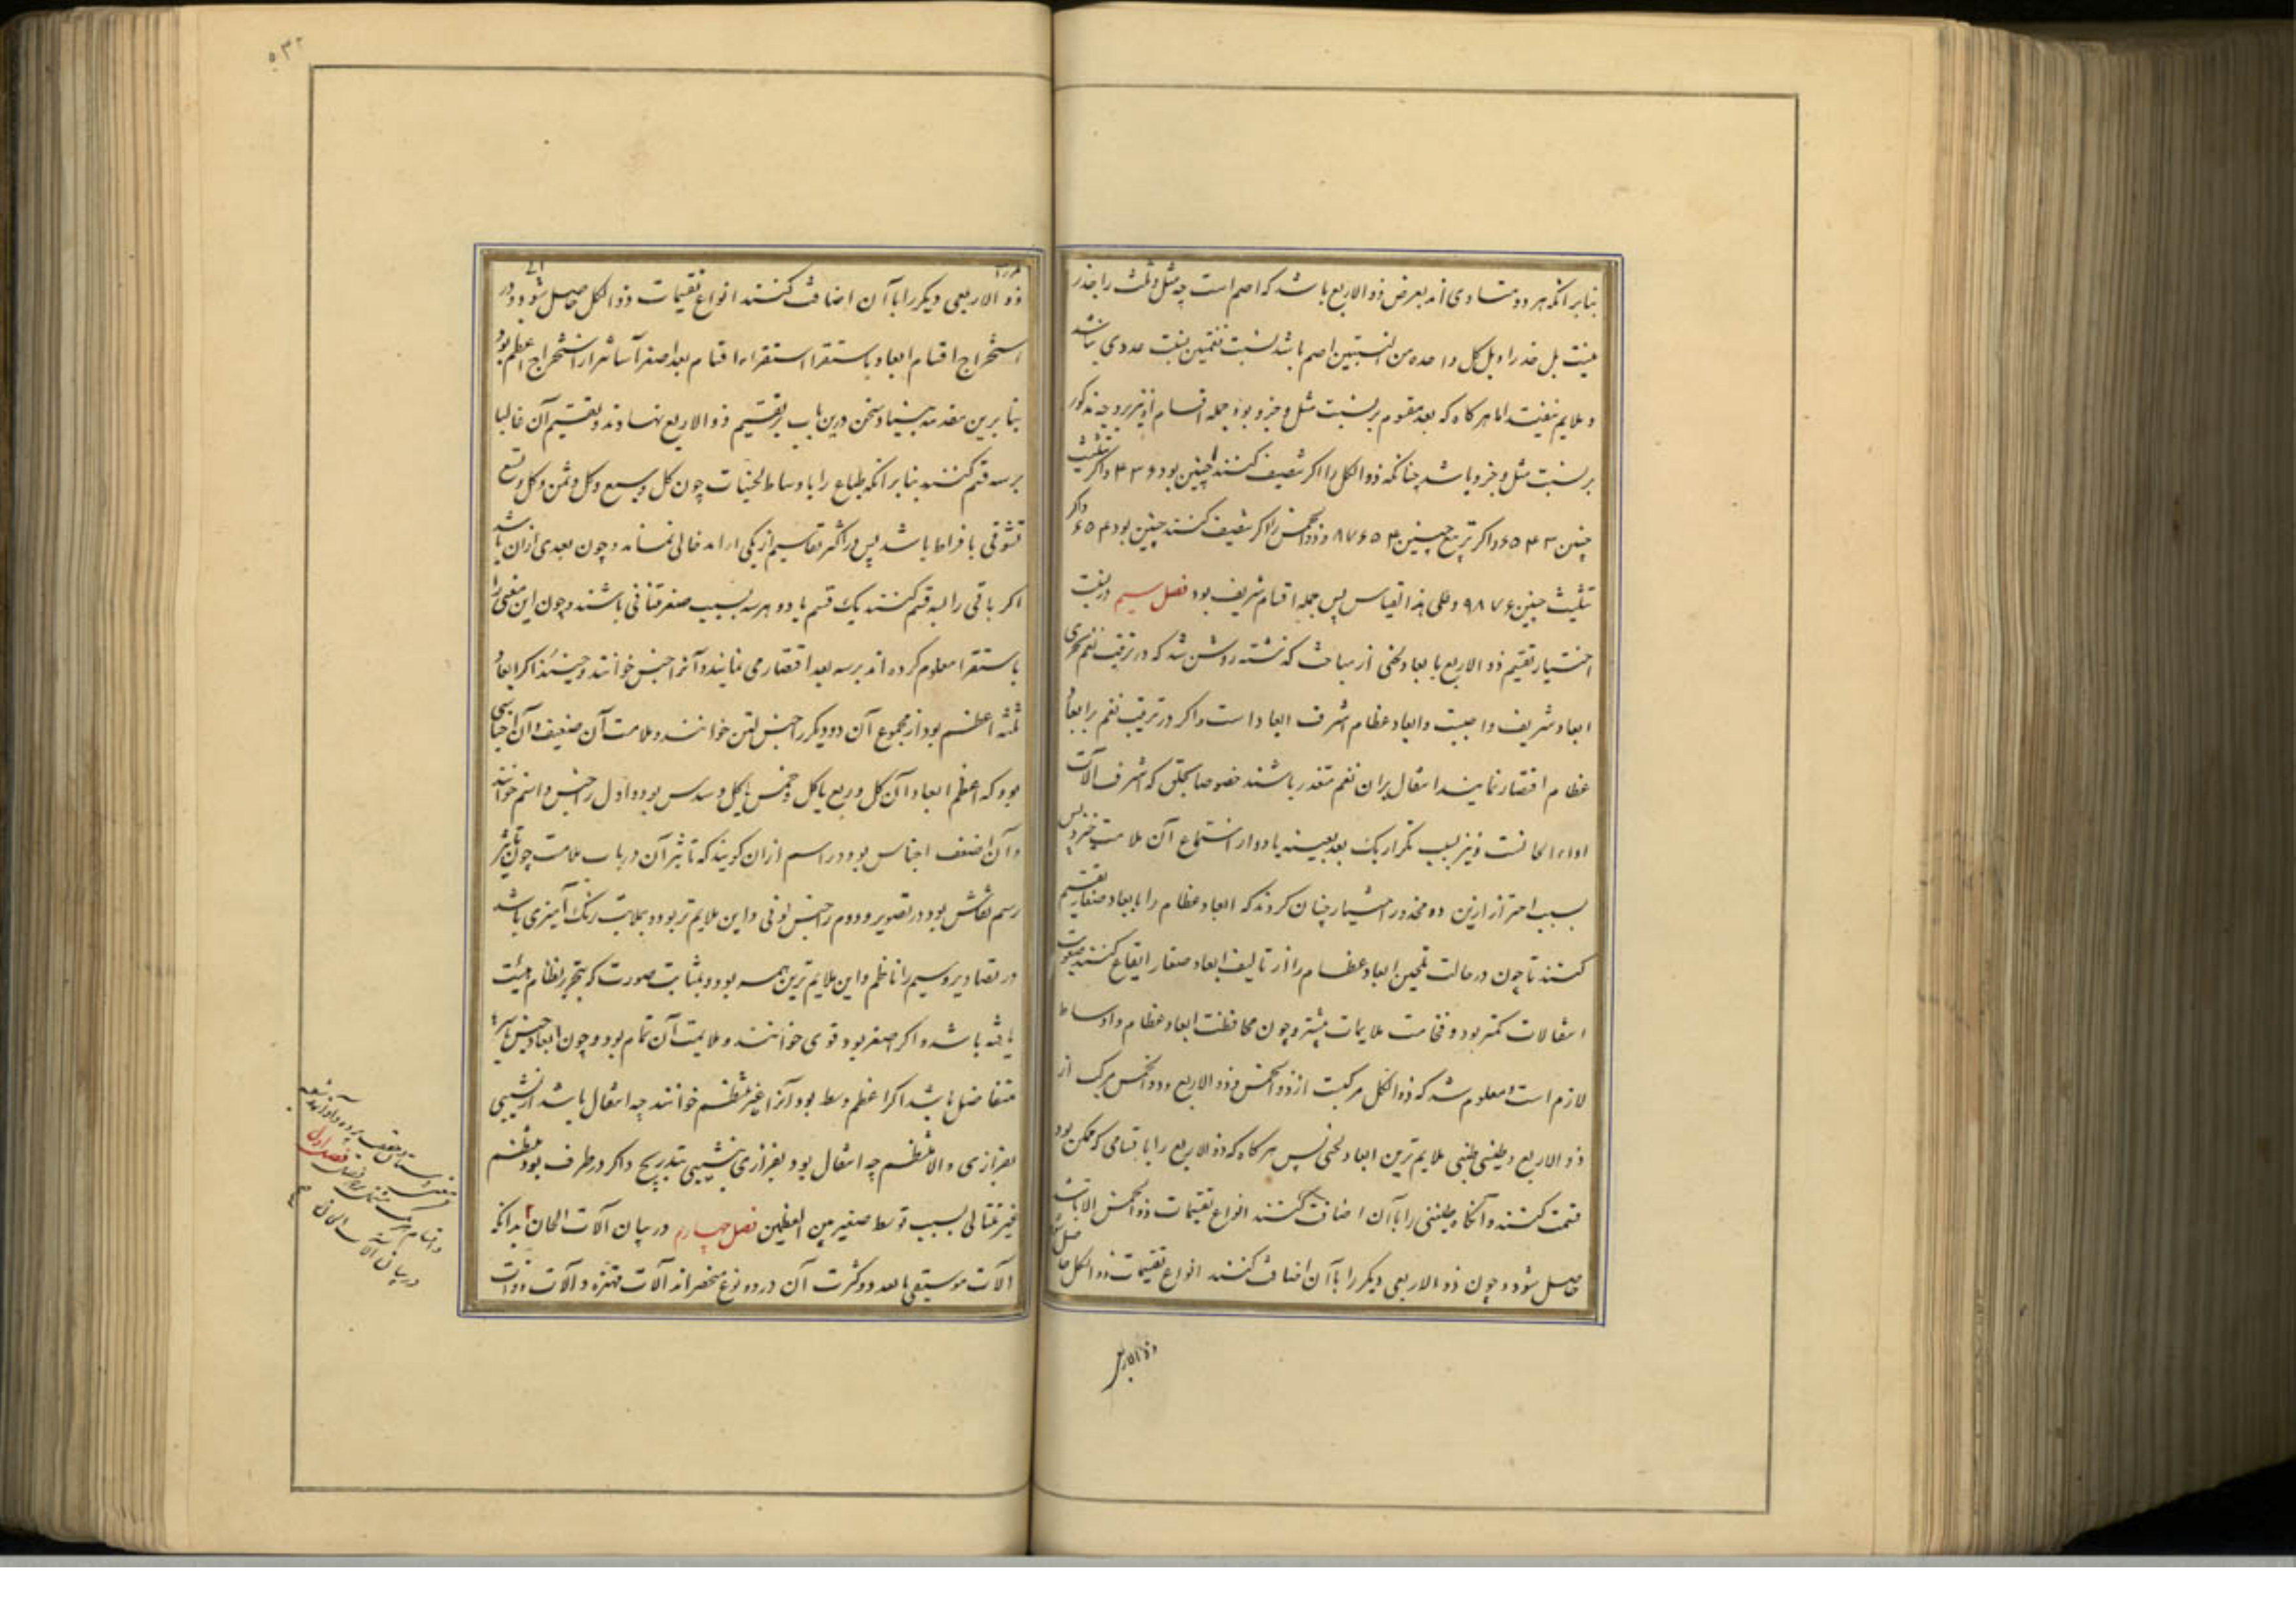 بنابر انکه هر دو متساوی اند بعرض ذو الاربع باشد که اصم است چه مثل و ثلث را جذر
نیست بل جذر او بل کل واحده من النسبتین اصم باشد نسبت نغمتین نسبت عددی نباشد
و ملایم نیفتد اما هر کاه که بعد مقسوم بر نسبت مثل و جزو بود جمله اقسام او نیز بر وجه مذکور
بر نسبت مثل و جزو باشد چنانکه ذو الکل را اکر تنصیف کنند چنین بود ۲ ۳ ۴ و اکر تثلیث
چنین ۳ ۴ ۵ ۶ و اکر تربیع چنین ۴ ۵ ۶ ۷ ۸ و ذو الخمس را اکر تنصیف کنند چنین بود ۴ ۵ ۶ و اکر
تثلیث چنین ۶ ۷ ۸ ۹ و علی هذا القیاس پس جمله اقسام شریف بود فصل سیم در نسبت
اختیار تقسیم ذو الاربع بابعاد لحنی از مباحث کذشته روشن شد که در ترتیب نغم تحری
ابعاد شریف واجبست و ابعاد عظام اشرف ابعاد است و اکر در ترتیب نغم بر ابعاد
عظام اقتصار نمایند انتقال بران نغم متعذر باشند خصوصا بحلق که اشرف الآت
اداء الحانست و نیز بسبب تکرار یک بعد بعینه یا دو از استماع آن ملامت خیزد پس
بسبب احتراز ازین دو محذور اختیار چنان کردند که ابعاد عظام را بابعاد صغار تقسیم
کنند تا چون در حالت تلحین ابعاد عظام را از تالیف ابعاد صغار ایقاع کنند صعوبت
انتقالات کمتر بود و فخامت ملایمات بیشتر و چون محافظت ابعاد عظام و اوساط
لازم است و معلوم شد که ذو الکل مرکبست از ذو الخمس و ذو الاربع و ذو الخمس مرکب از
ذو الاربع و طنینی و طنینی ملایم ترین ابعاد لحنی پس هر کاه که ذو الاربع را باقسامی که ممکن بود
قسمت کنند و آنکاه طنینی را باآن اضافت کنند انواع تقسیمات ذو الخمس الاثبات
حاصل شود و چون ذو الاربعی دیکر را باآن اضافت کنند انواع تقسیمات ذو الکل حاصل شود
ذو الاربعی
۵۳۲
ذو الاربعی دیکر را باآن اضافت کنند انواع تقسیمات ذو الکل حاصل شود و در
استخراج اقسام ابعاد باستقرا استقراء اقسام بعد اصغر آسانتر از استخراج اعظم بود
بنابرین مقدمه بنیاد سخن درین باب بر تقسیم ذو الاربع نهادند و تقسیم آن غالبا
بر سه قسم کنند بنابر انکه طباع را باوساط لحنیات چون کل و سبع و کل و ثمن و کل و تسع
تشوقی بافراط باشد پس در اکثر تقاسیم از یکی از اند خالی نماند و چون بعدی ازان باشد
اکر باقی را بسه قسم کنند یک قسم یا دو هر سه بسبب صغر متنافی باشند و چون این معنی را
باستقرا معلوم کرده اند بر سه بعد اقتصار می نمایند و آنرا جنس خوانند و حینئذ اکر ابعاد
ثلثه اعظم بود از مجموع آن دو دیکر را جنس لین خوانند و ملامت آن ضعیف و آن اجناسی
بود که اعظم ابعاد آن کل و ربع یا کل و خمس یا کل و سدس بود و اول را جنس راسم خوانند
و آن اضعف اجناس بود و راسم ازان کویند که تاثیر آن در باب ملامت چون تاثیر
رسم نقاش بود در تصویر و دوم را جنس لونی و این ملایم تر بود و بمثابت رنک آمیزی باشد
در تصاویر و سیم را ناظم و این ملایم ترین همه بود و بمثابت صورت که بتحریر نظام هیئت
یافته باشد و اکر اصغر بود قوی خوانند و ملایمت آن تمام بود و چون ابعاد جنس بر
متفاضل باشد اکر اعظم وسط بود آنرا غیر منتظم خوانند چه انتقال باشد از نشیبی
بفرازی و الا منتظم چه انتقال بود بفرازی نشیبی بتدریج و اکر در طرف بود منتظم
غیر متتالی بسبب توسط صغیر بین العظیمین فصل چهارم در بیان آلات الحان بدانکه
آلات موسیقی با تعدد و کثرت آن در دو نوع منحصر اند آلات مهتزه و آلات ذوات
فصل اول
در بیان آلات الحان